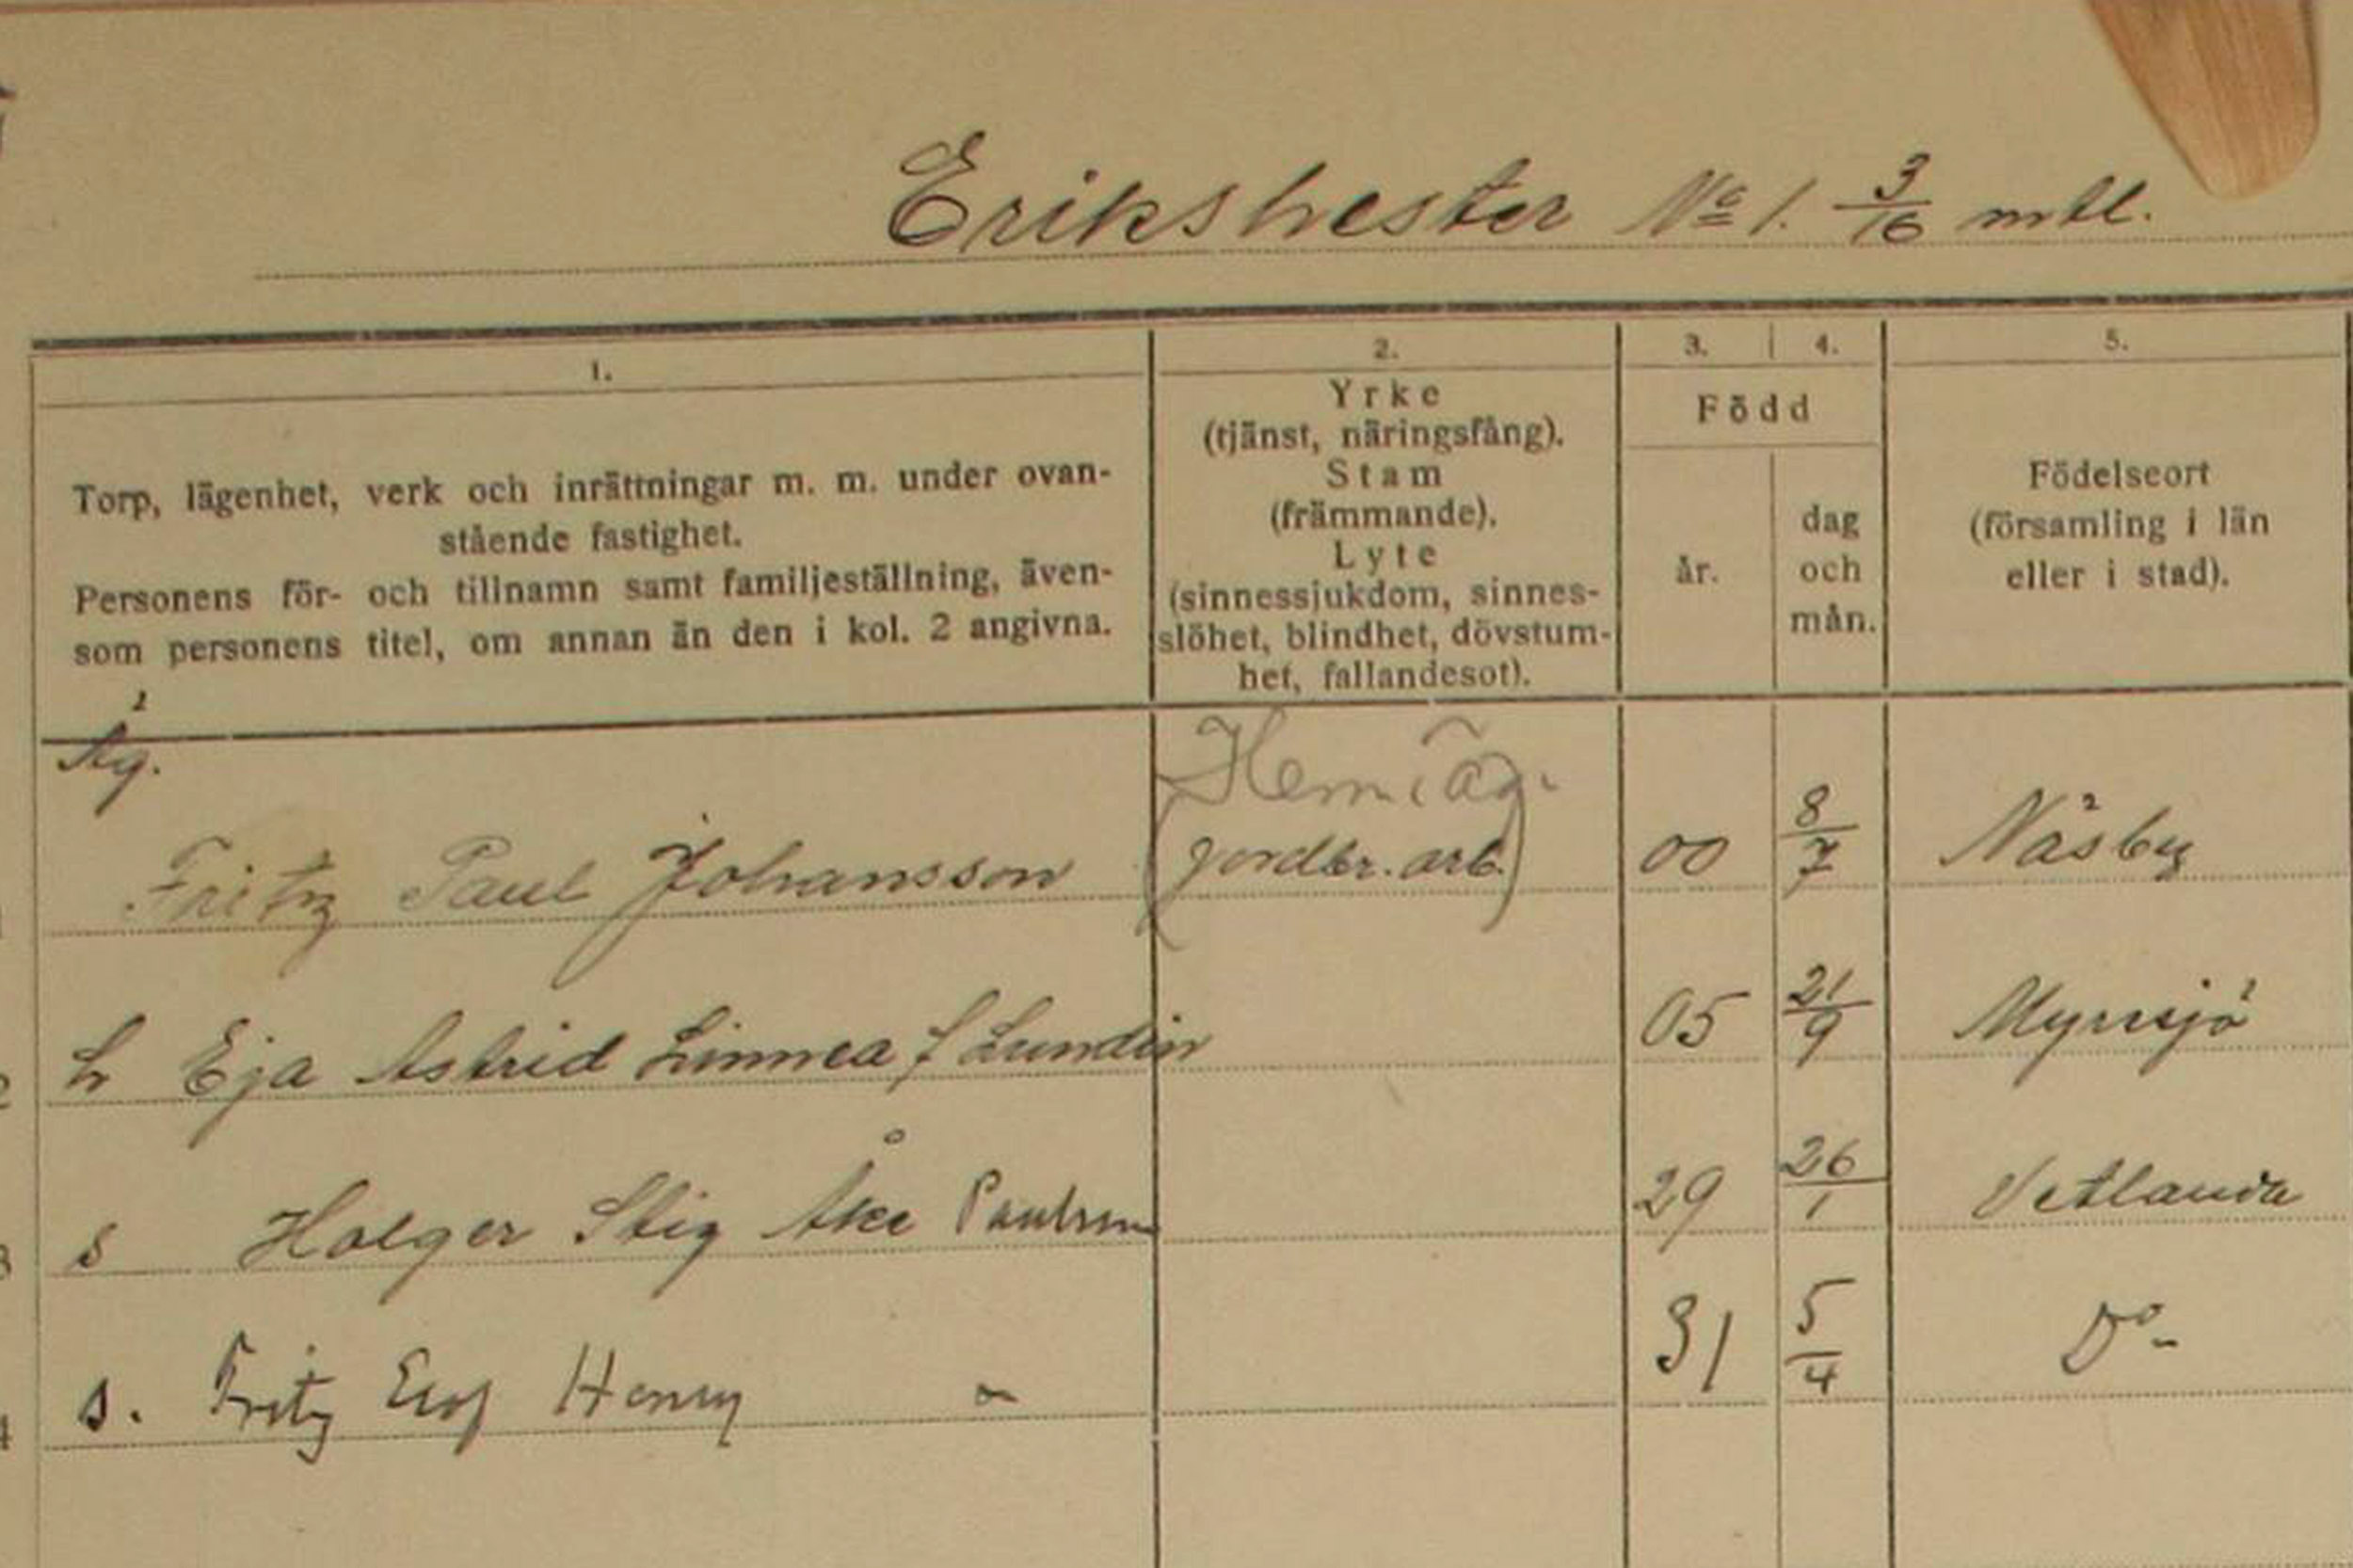 Erikshester No 1. 3/16 mtl.
1.
2.
3.
4.
5.
Torp, lägenhet, verk och inrättningar m. m. under ovan-
stående fastighet.
Personens för- och tillnamn samt familjeställning, även-
som personens titel, om annan än den i kol. 2 angivna.
Yrke
(tjänst, näringsfång).
Stam
(främmande).
Lyte
(sinnessjukdom, sinnes-
slöhet, blindhet, dövstum-
het, fallandesot).
Född
år.
dag
och
mån.
Födelseort
(församling i län
eller i stad).
Äg.
Hem. äg.
Fritz Paul Johansson (jordbr. arb.) 00 8/7 Näsby
h Eja Astrid Linnea f Lundin 05 21/9 Myresjö
s Holger Stig Åke Paulsson 29 26/1 Vetlanda
s. Fritz Elof Henry " 31 5/4 Do-